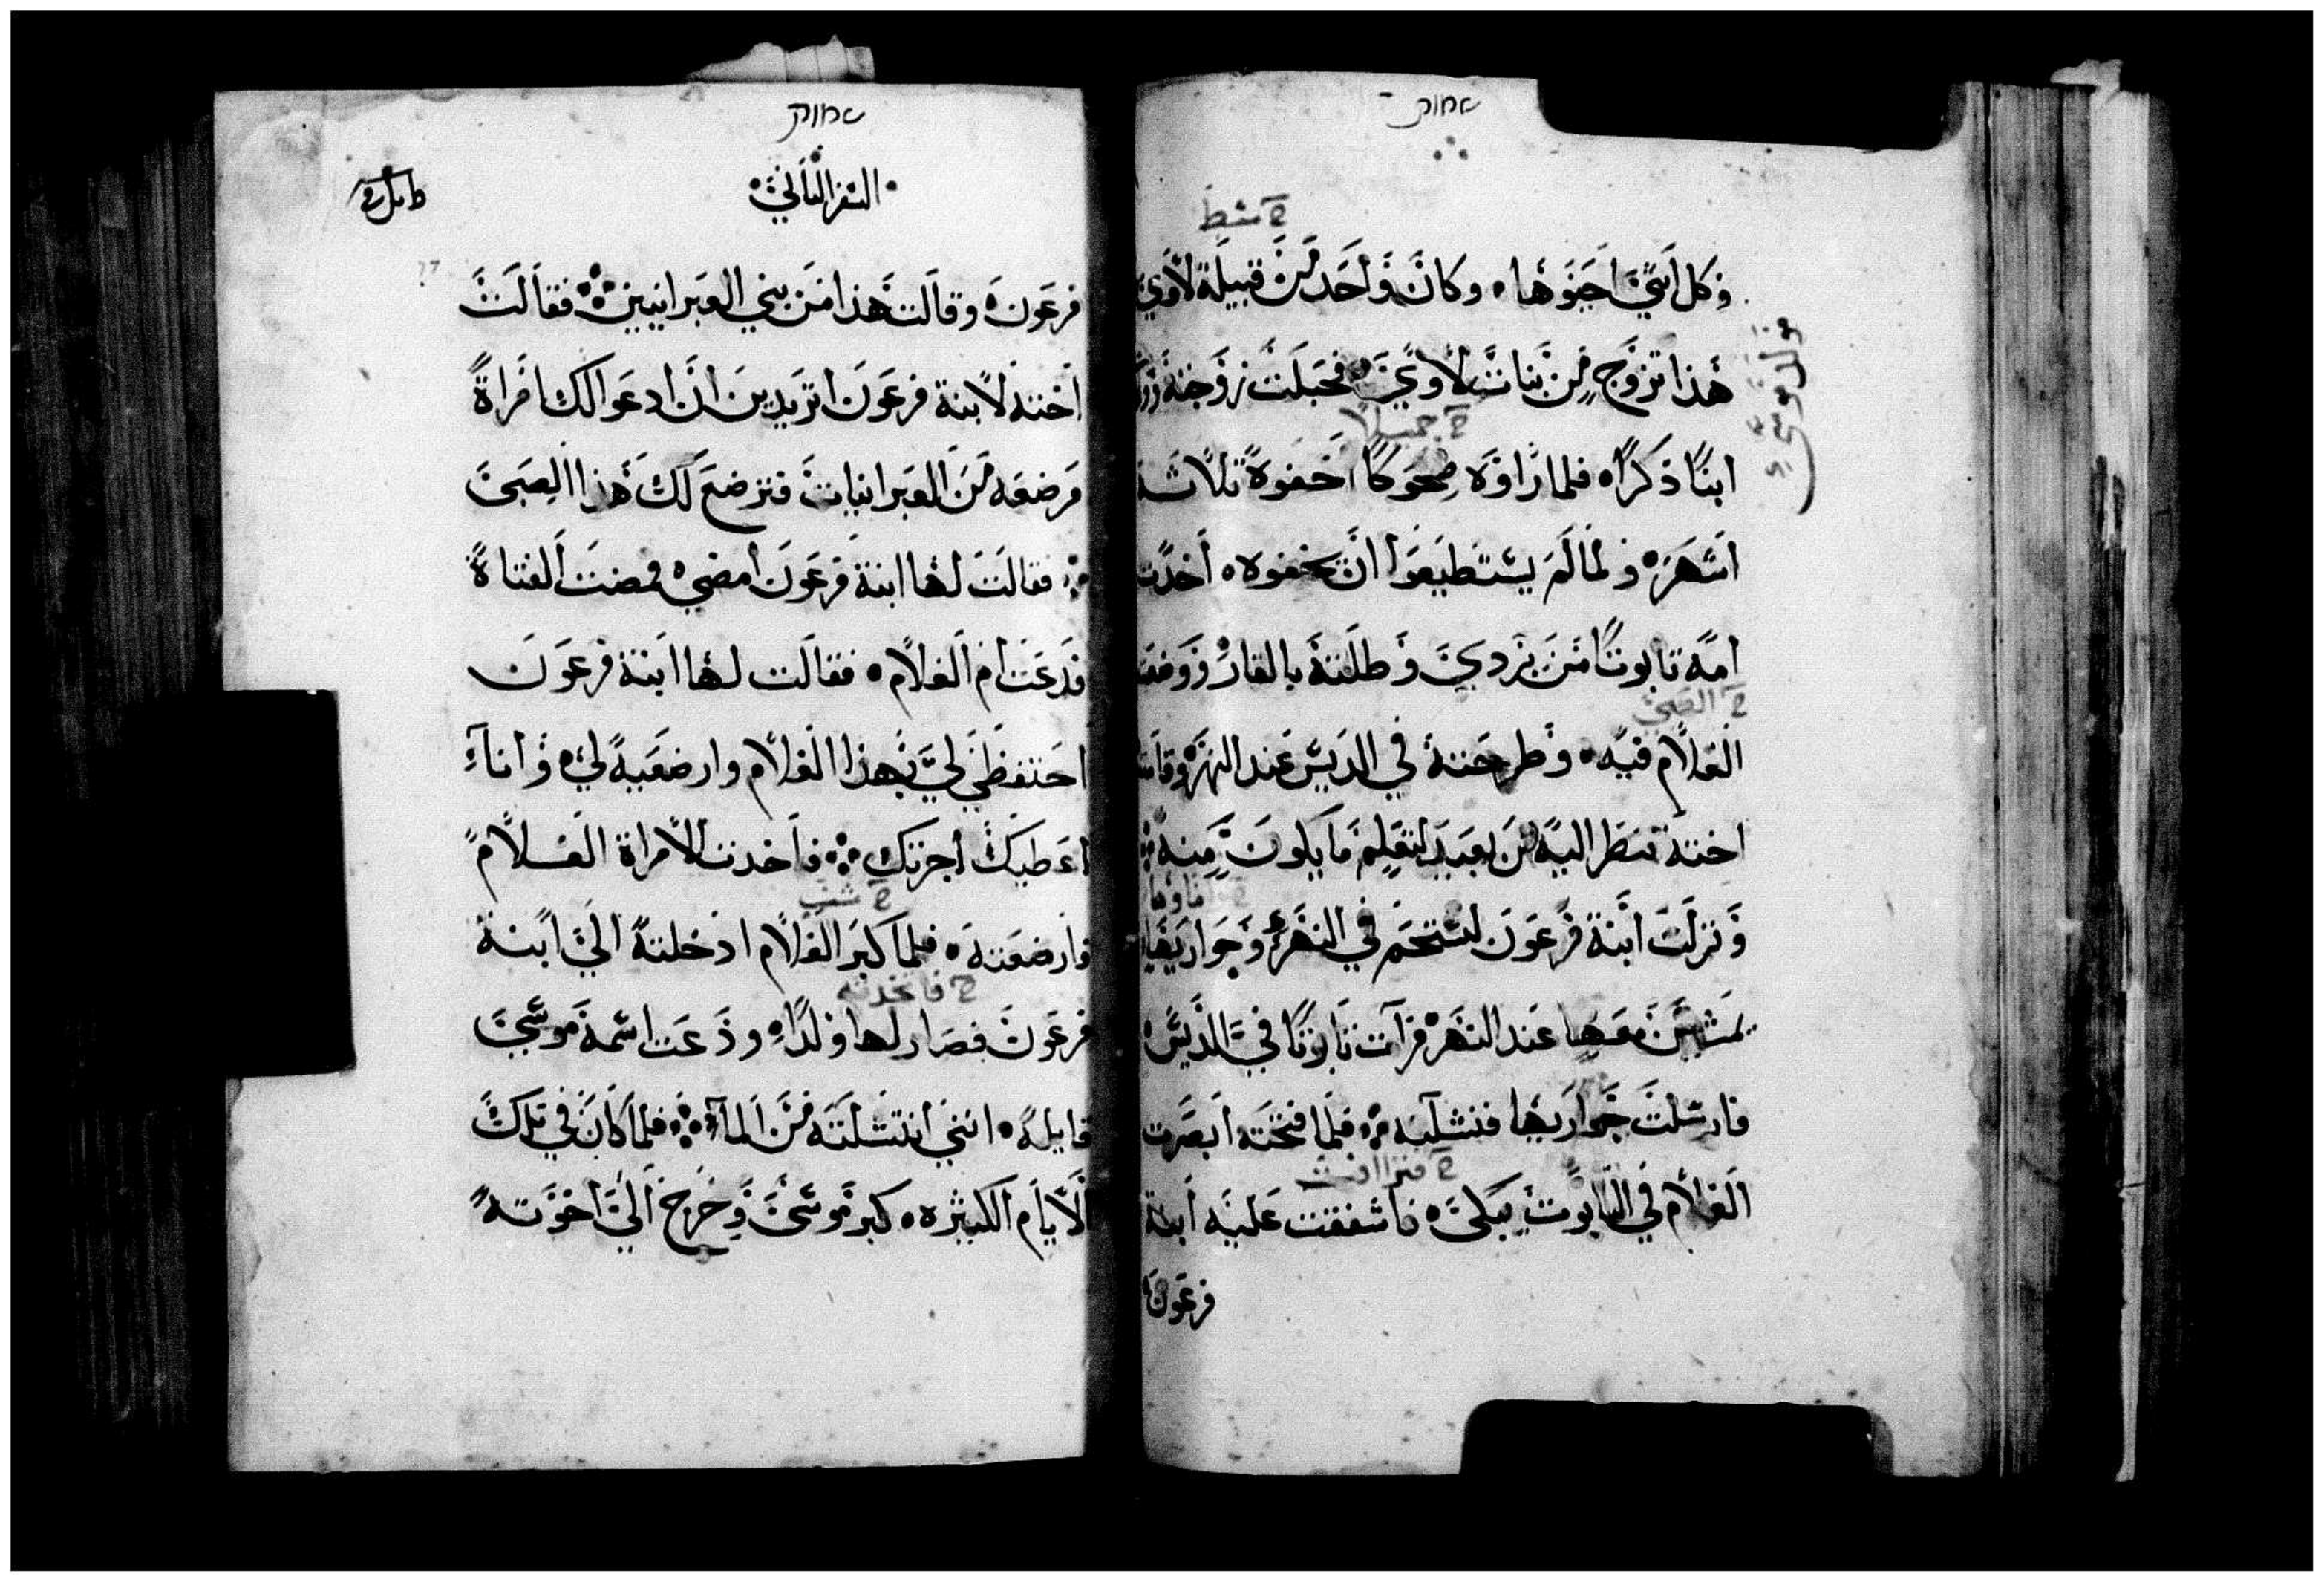 שמות
خ سبط
وكل انثى احيوها • وكان واحد من قبيلة لاوي
هذا تزوج من بنات لاوي فحبلت زوجته
مولد موسى
خ جميلا
ابنا ذكرا • فلما راوه ضحوكا اخفوه ثلاثة
اشهر • ولما لم يستطيعوا ان يخفوه • اخدت
امه تابوتا من بردي وطلته بالقار ووضعت
خ الصبي
الغلام فيه • وطرحته في الديس عند النهر وقامت
اخته تنظر اليه من بعيد لتعلم ما يكون منه
ونزلت ابنة فرعون لتستحم في النهر وجواريها
يمشين معها عند النهر فرات تابوتا في الديس
فارسلت جواريها فنشلنه فلما فتحته ابصرت
خ فتراافت
الغلام في التابوت يبكي • فاشفقت عليه ابنة
فرعون
שמות
السفر الثاني
فرعون • وقالت هذا من بني العبرانيين فقالت
اخته لابنة فرعون اتريدين ان ادعو الك امراة
مرضعه من العبرانيات فترضع لك هذا الصبي
فقالت لها ابنة فرعون امضي • فمضت الفتاة
فدعت ام الغلام • فقالت لها ابنة فرعون
احتفظي لي بهذا الغلام وارضعيه لي • وانا
اعطيك اجرتك فاخدت الامراة الغلام
خ شب
وارضعته • فلما كبر الغلام ادخلته الى ابنة
خ فاتخذته
فرعون فصار لها ولدا • ودعت اسمه موسى
قايلة • انني انتشلته من الماء فلما كان في تلك
الايام الكثيره • كبر موسى وخرج الى اخوته